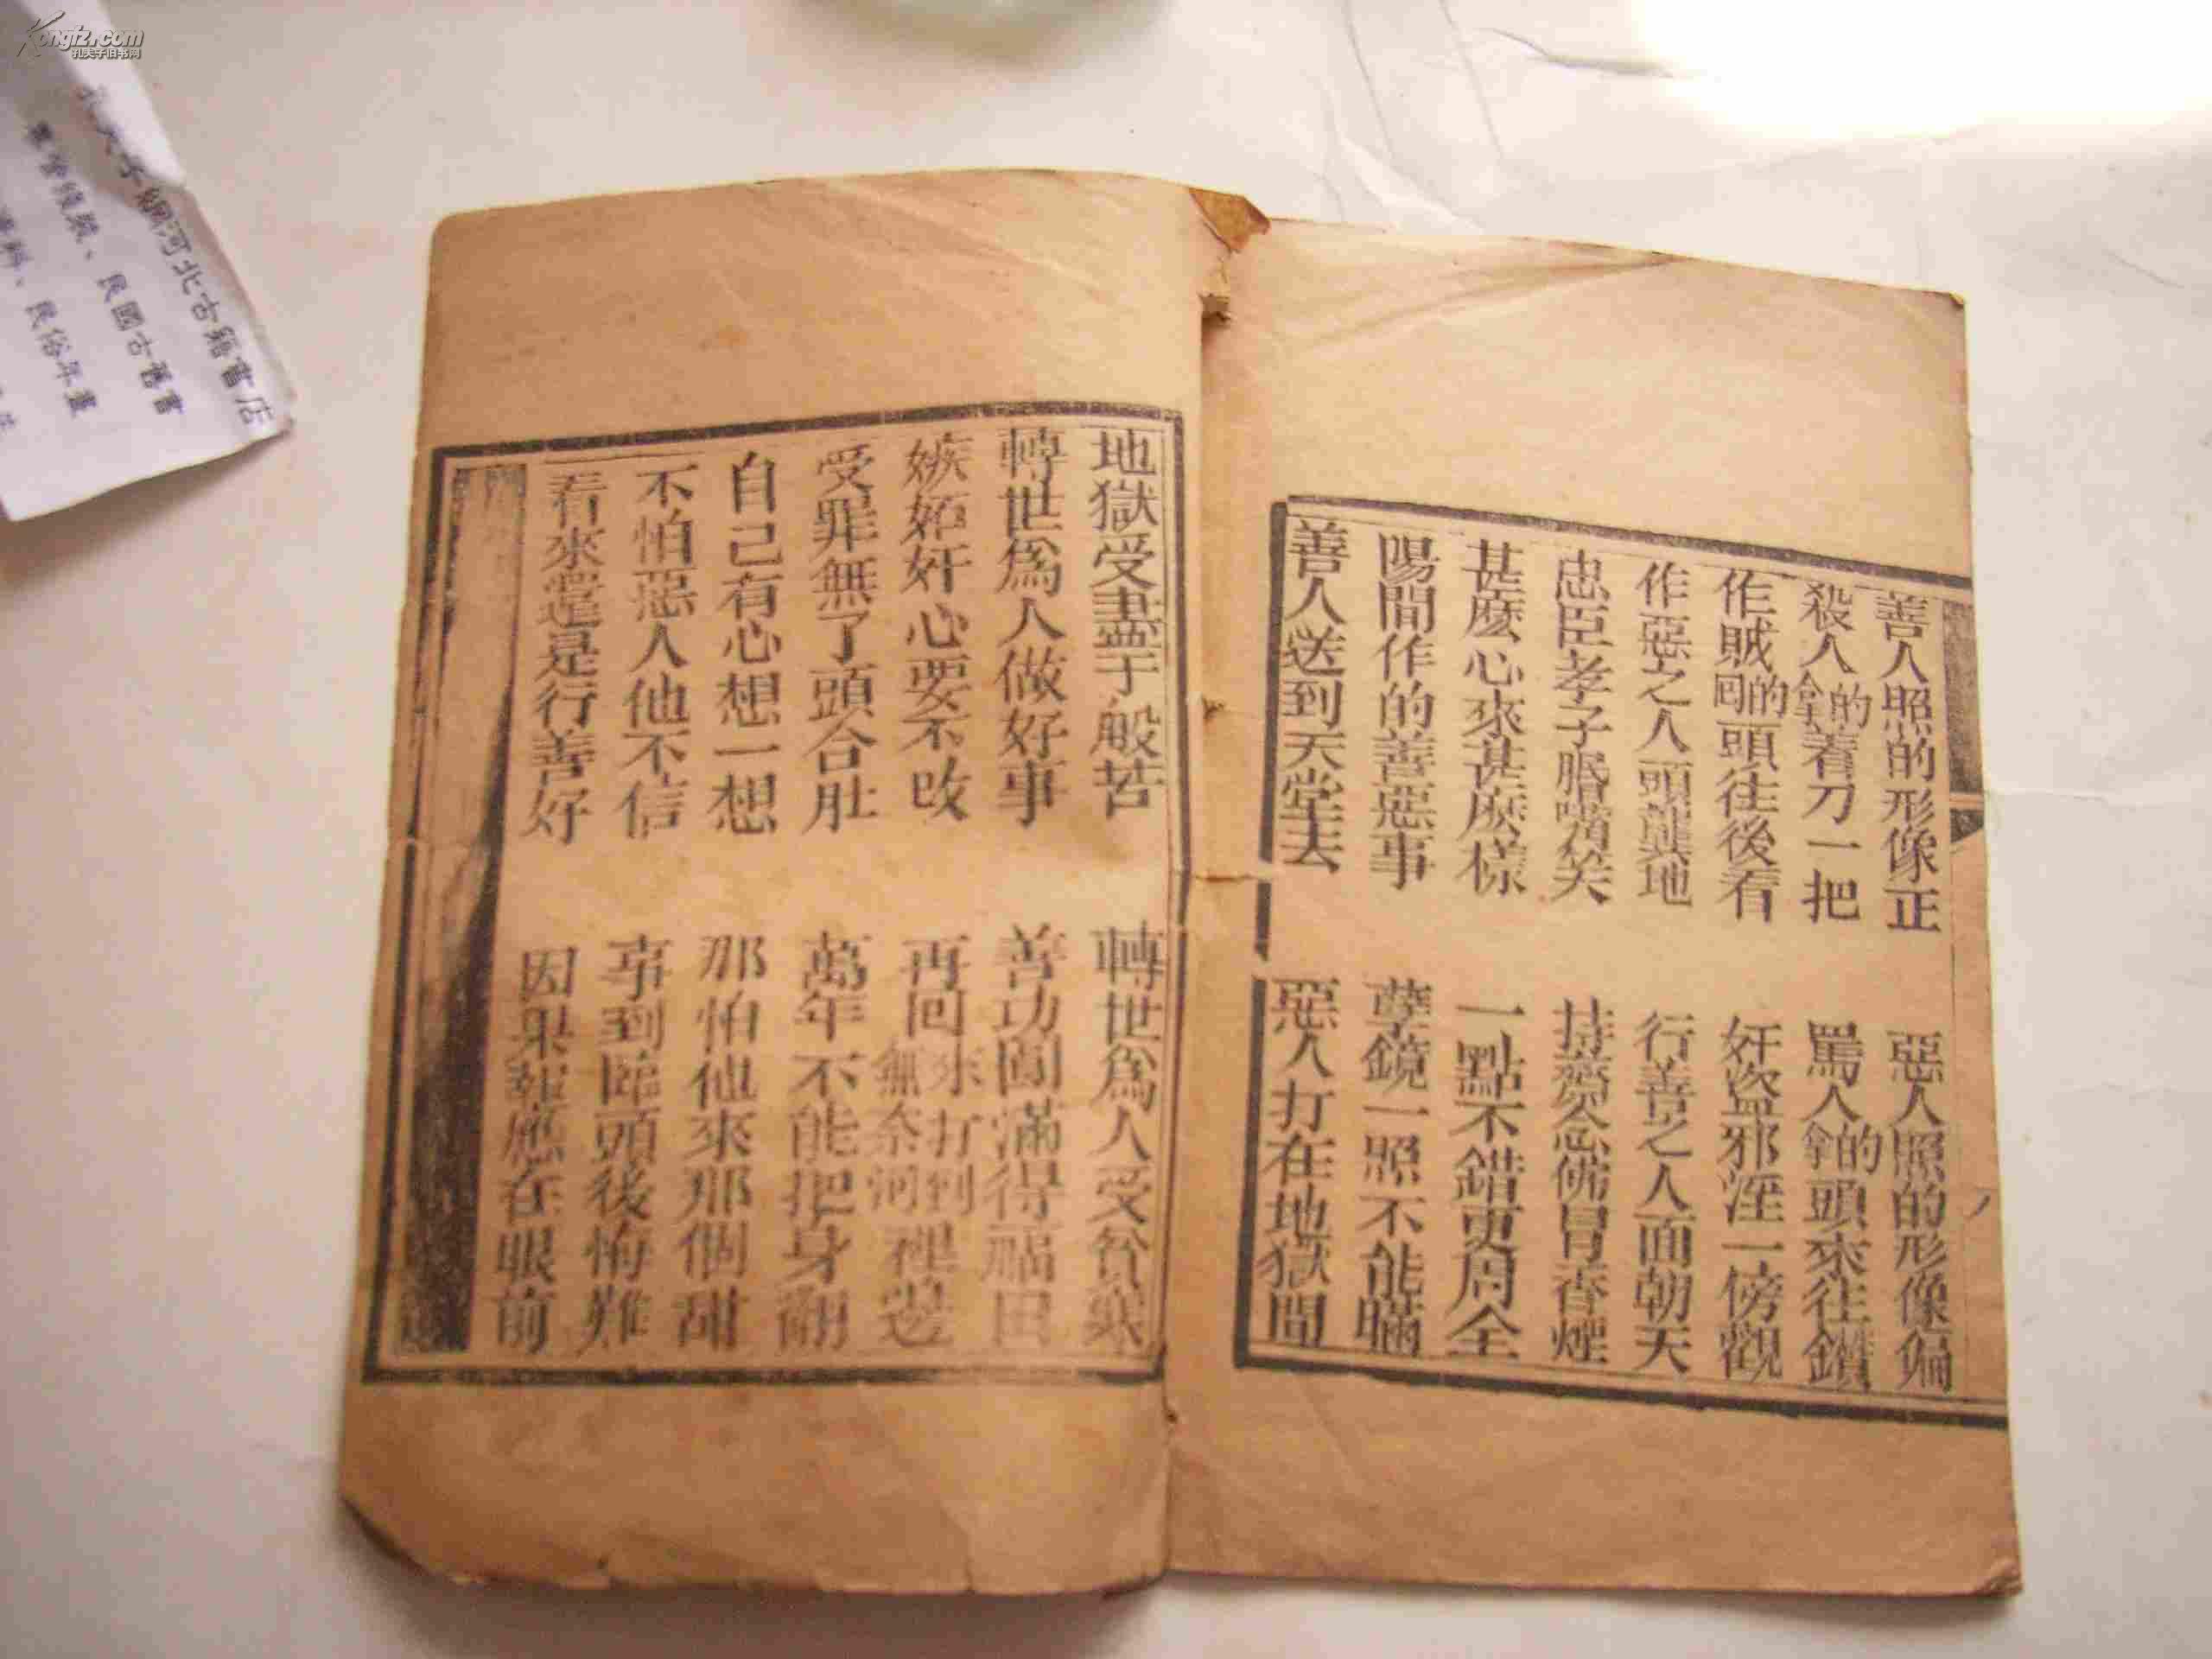 善人照的形像正　惡人照的形像偏
殺人的拿着刀一把　罵人的拿頭來往鑽
作賊的回頭往後看　奸盜邪淫一傍觀
作惡之人頭冀地　行善之人面朝天
忠臣孝子脣嘴笑　持齋念佛冒香煙
甚麽心來甚麽樣　一點不錯更周全
陽間作的善惡事　孽鏡一照不能瞞
善人送到天堂去　惡人打在地獄間
地獄受盡千般苦　轉世爲人受貧寒
轉世爲人做好事　善功圓滿得福田
嫉妬奸心要不改　再回來打到無奈河裡邊
受罪無了頭合肚　萬年不能把身翻
自己有心想一想　那怕他來那個甜
不怕惡人他不信　事到臨頭後悔難
看來還是行善好　因果報應在眼前
Kongfz.com
孔夫子旧书网
子網河北古籍書店
線裝、民國古舊書
、民俗年畫